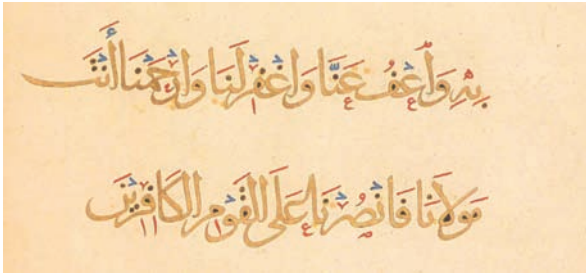 بِهِ وَاعْفُ عَنَّا وَاغْفِرْ لَنَا وَارْحَمْنَا أَنْتَ
مَوْلَانَا فَانْصُرْنَا عَلَى الْقَوْمِ الْكَافِرِينَ